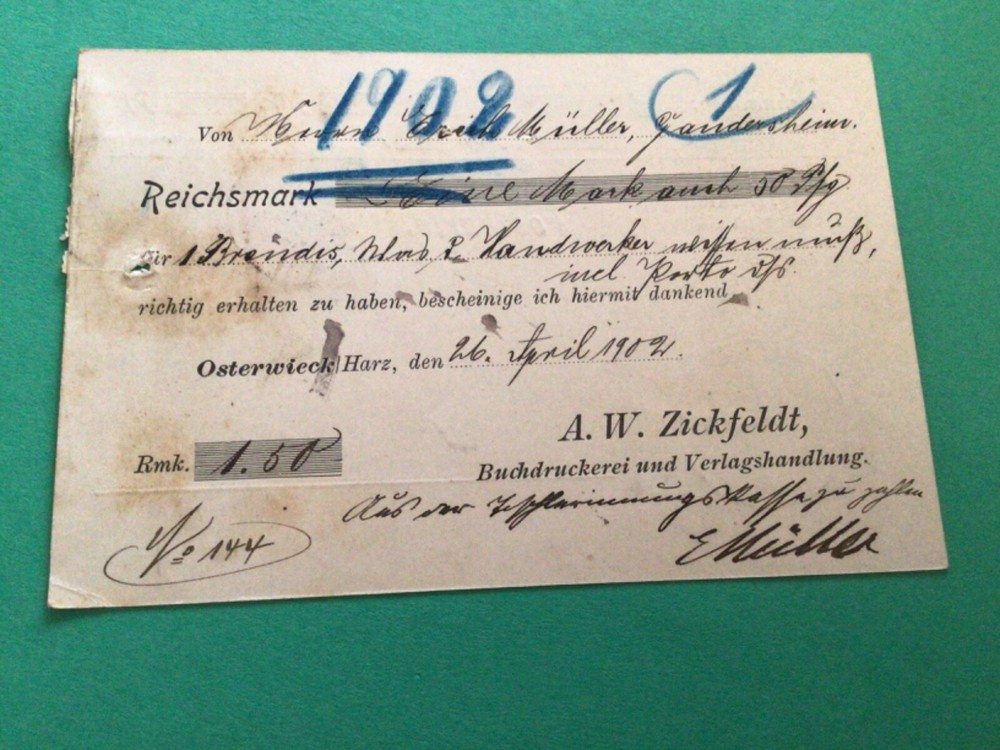 1902 C 1
Von Herrn Erich Müller, Gandersheim.
Reichsmark Eine Mark auch 50 Pfg
für 1 Brandis, Was d. Handwerker wissen muß,
incl Porto
richtig erhalten zu haben, bescheinige ich hiermit dankend
Osterwieck/Harz, den 26. April 1902.
A. W. Zickfeldt,
Rmk. 1.50
Buchdruckerei und Verlagshandlung.
Aus der Tischlerinnungskasse zu zahlen
No 144
EMüller